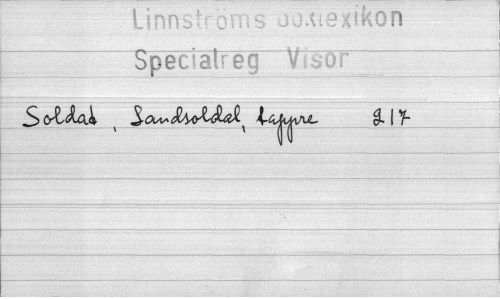 Linnströms boklexikon
Specialreg Visor
Soldat, Landsoldat, tappre 217